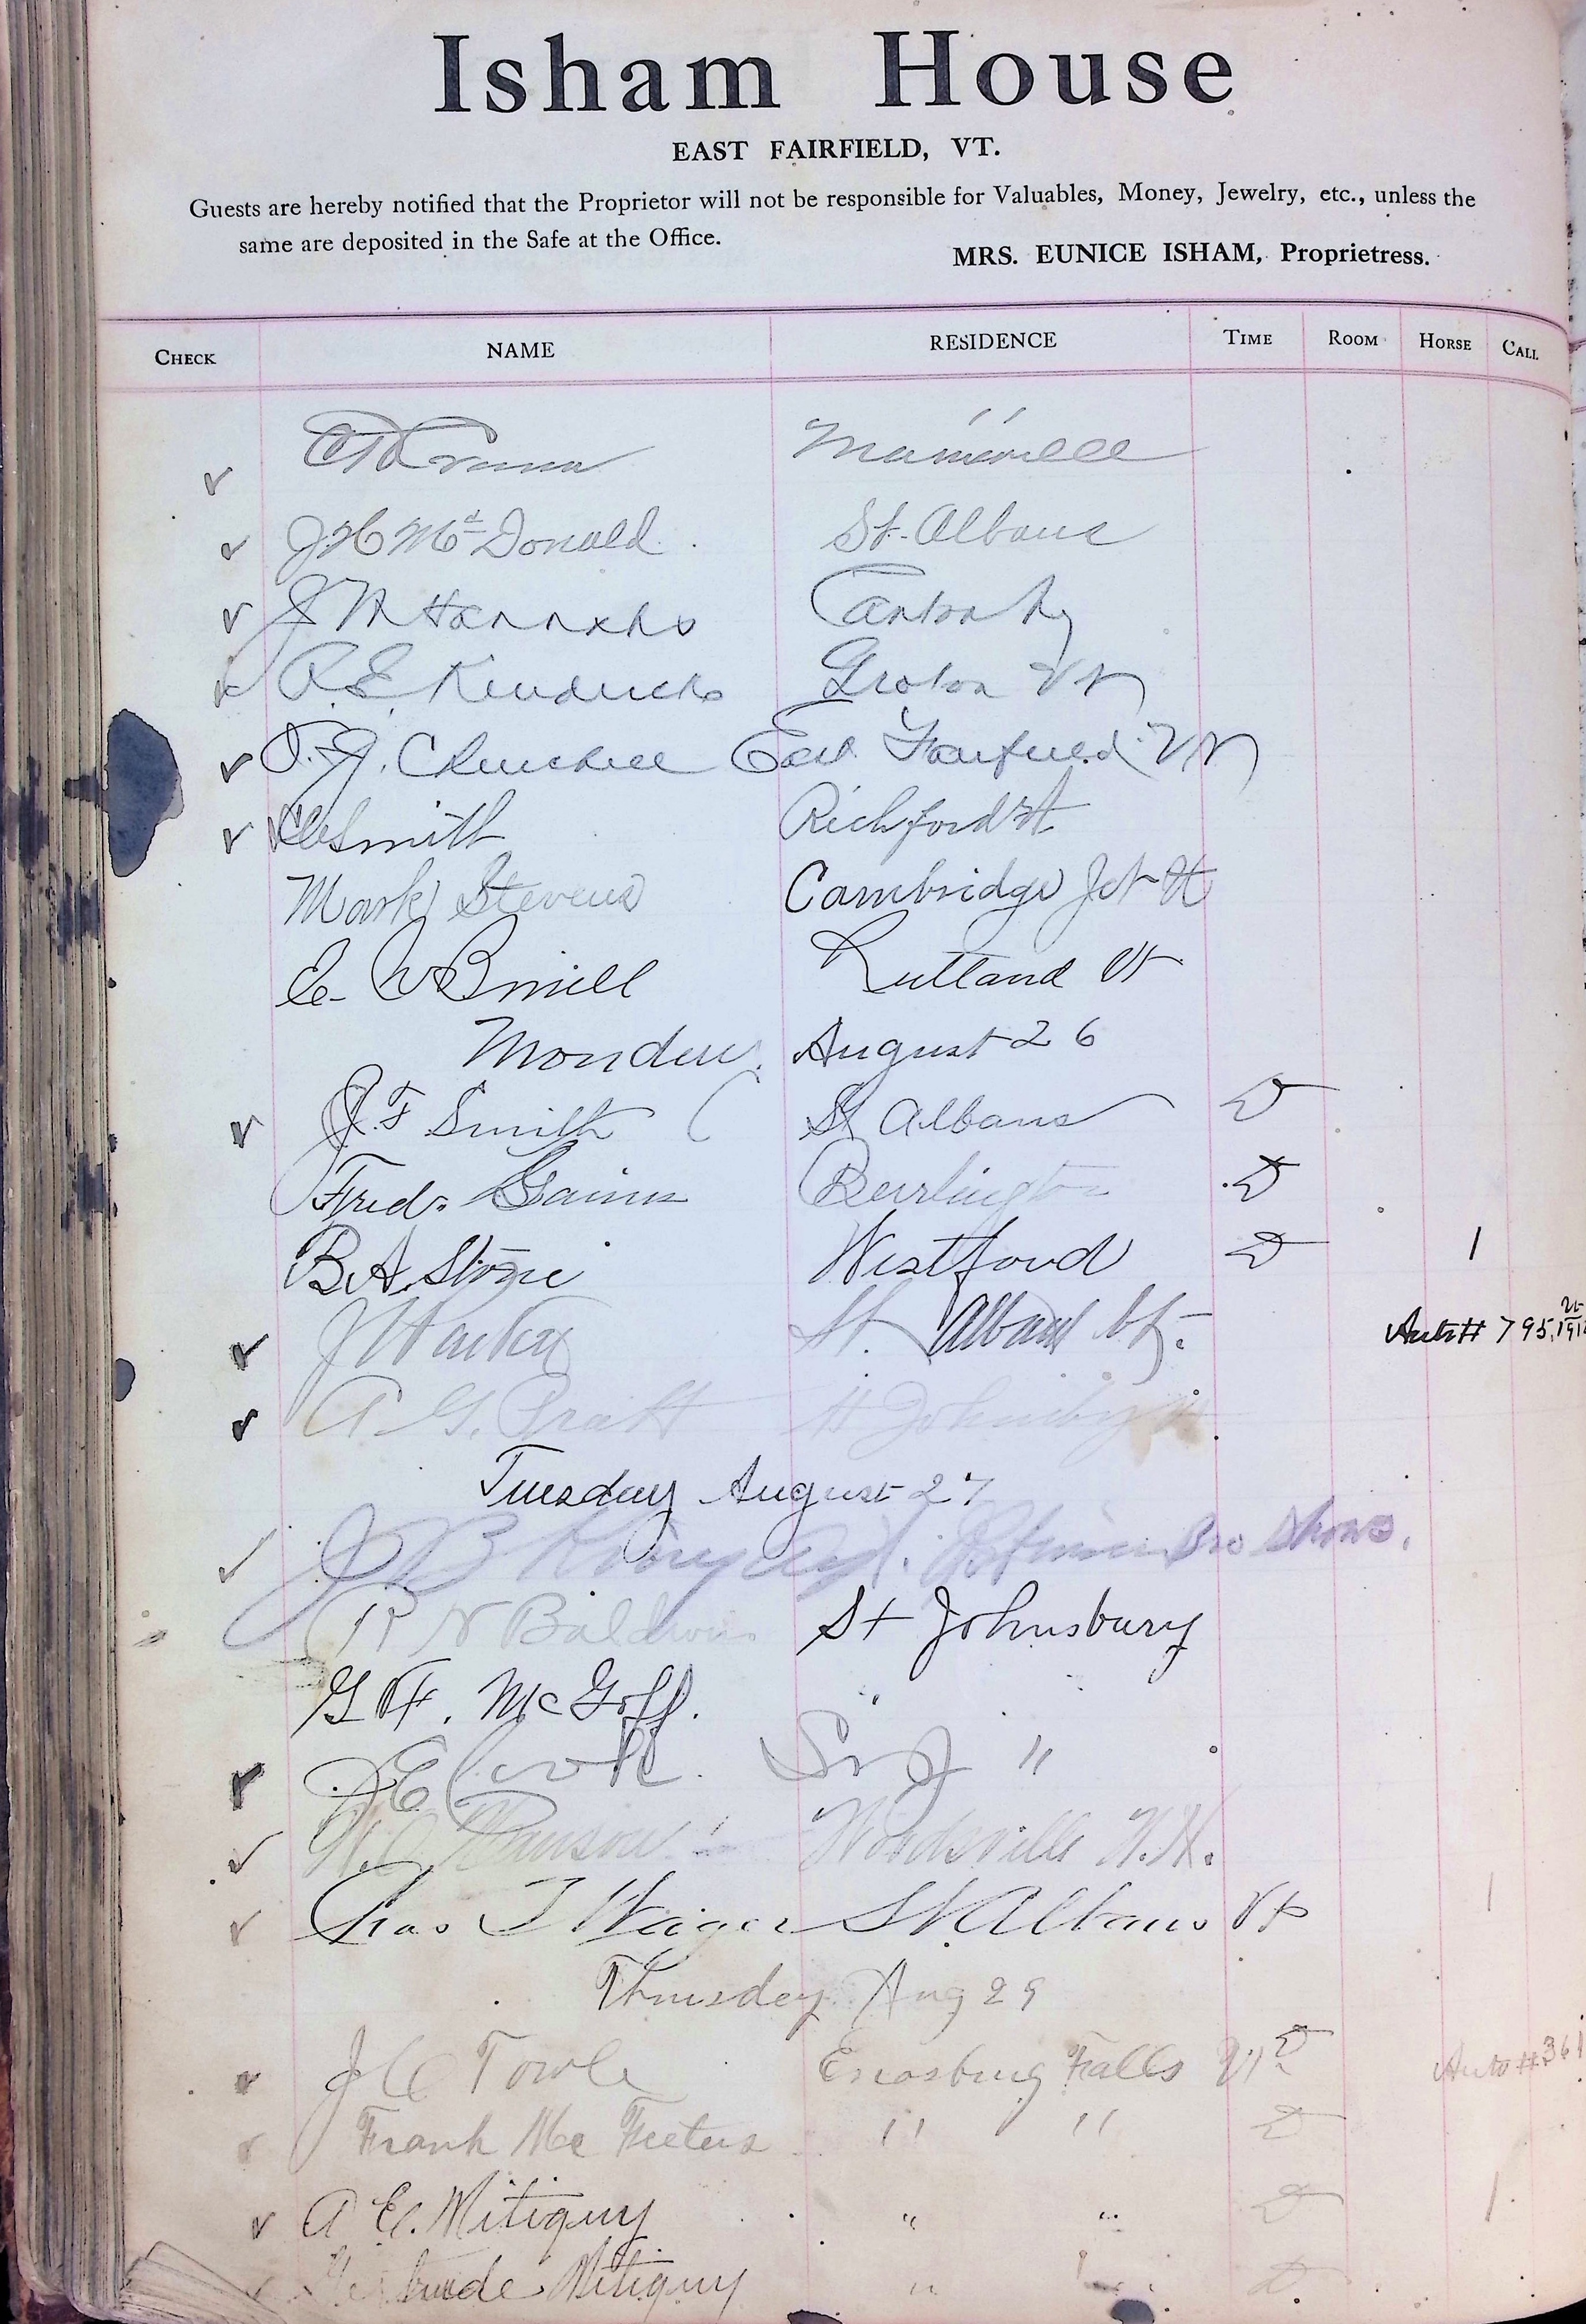 Isham House
EAST FAIRFIELD, VT.
Guests are hereby notified that the Proprietor will not be responsible for Valuables, Money, Jewelry, etc., unless the
same are deposited in the Safe at the Office.
MRS. EUNICE ISHAM, Proprietress.
CHECK NAME RESIDENCE TIME ROOM HORSE CALL
J H McDonald St. Albans
Canton Ny
R. E. Kendricks Groton Vt
East Fairfield Vt
Smith Richford Vt
Mark Stevens Cambridge Jct Vt
Rutland Vt
Monday August 26
J. F Smith St Albans D
Fred. Burlington D
B. A. Stone Westford D 1
St. Albans Vt. Auto # 795
A G. Pratt St Johnsbury
Tuesday August 27
J B Bro Shows.
R N Baldwin St Johnsbury
G H. McGoff. "
J E Cook. "
Woodsville N.H.
Chas T Waiger St. Albans Vt 1
Thursday Aug 29
J C Towle Enosburg Falls Vt D Auto # 361
Frank Mc Feeters " " D
A E. Mitiguy " " D 1
Gertrude Mitiguy " " D